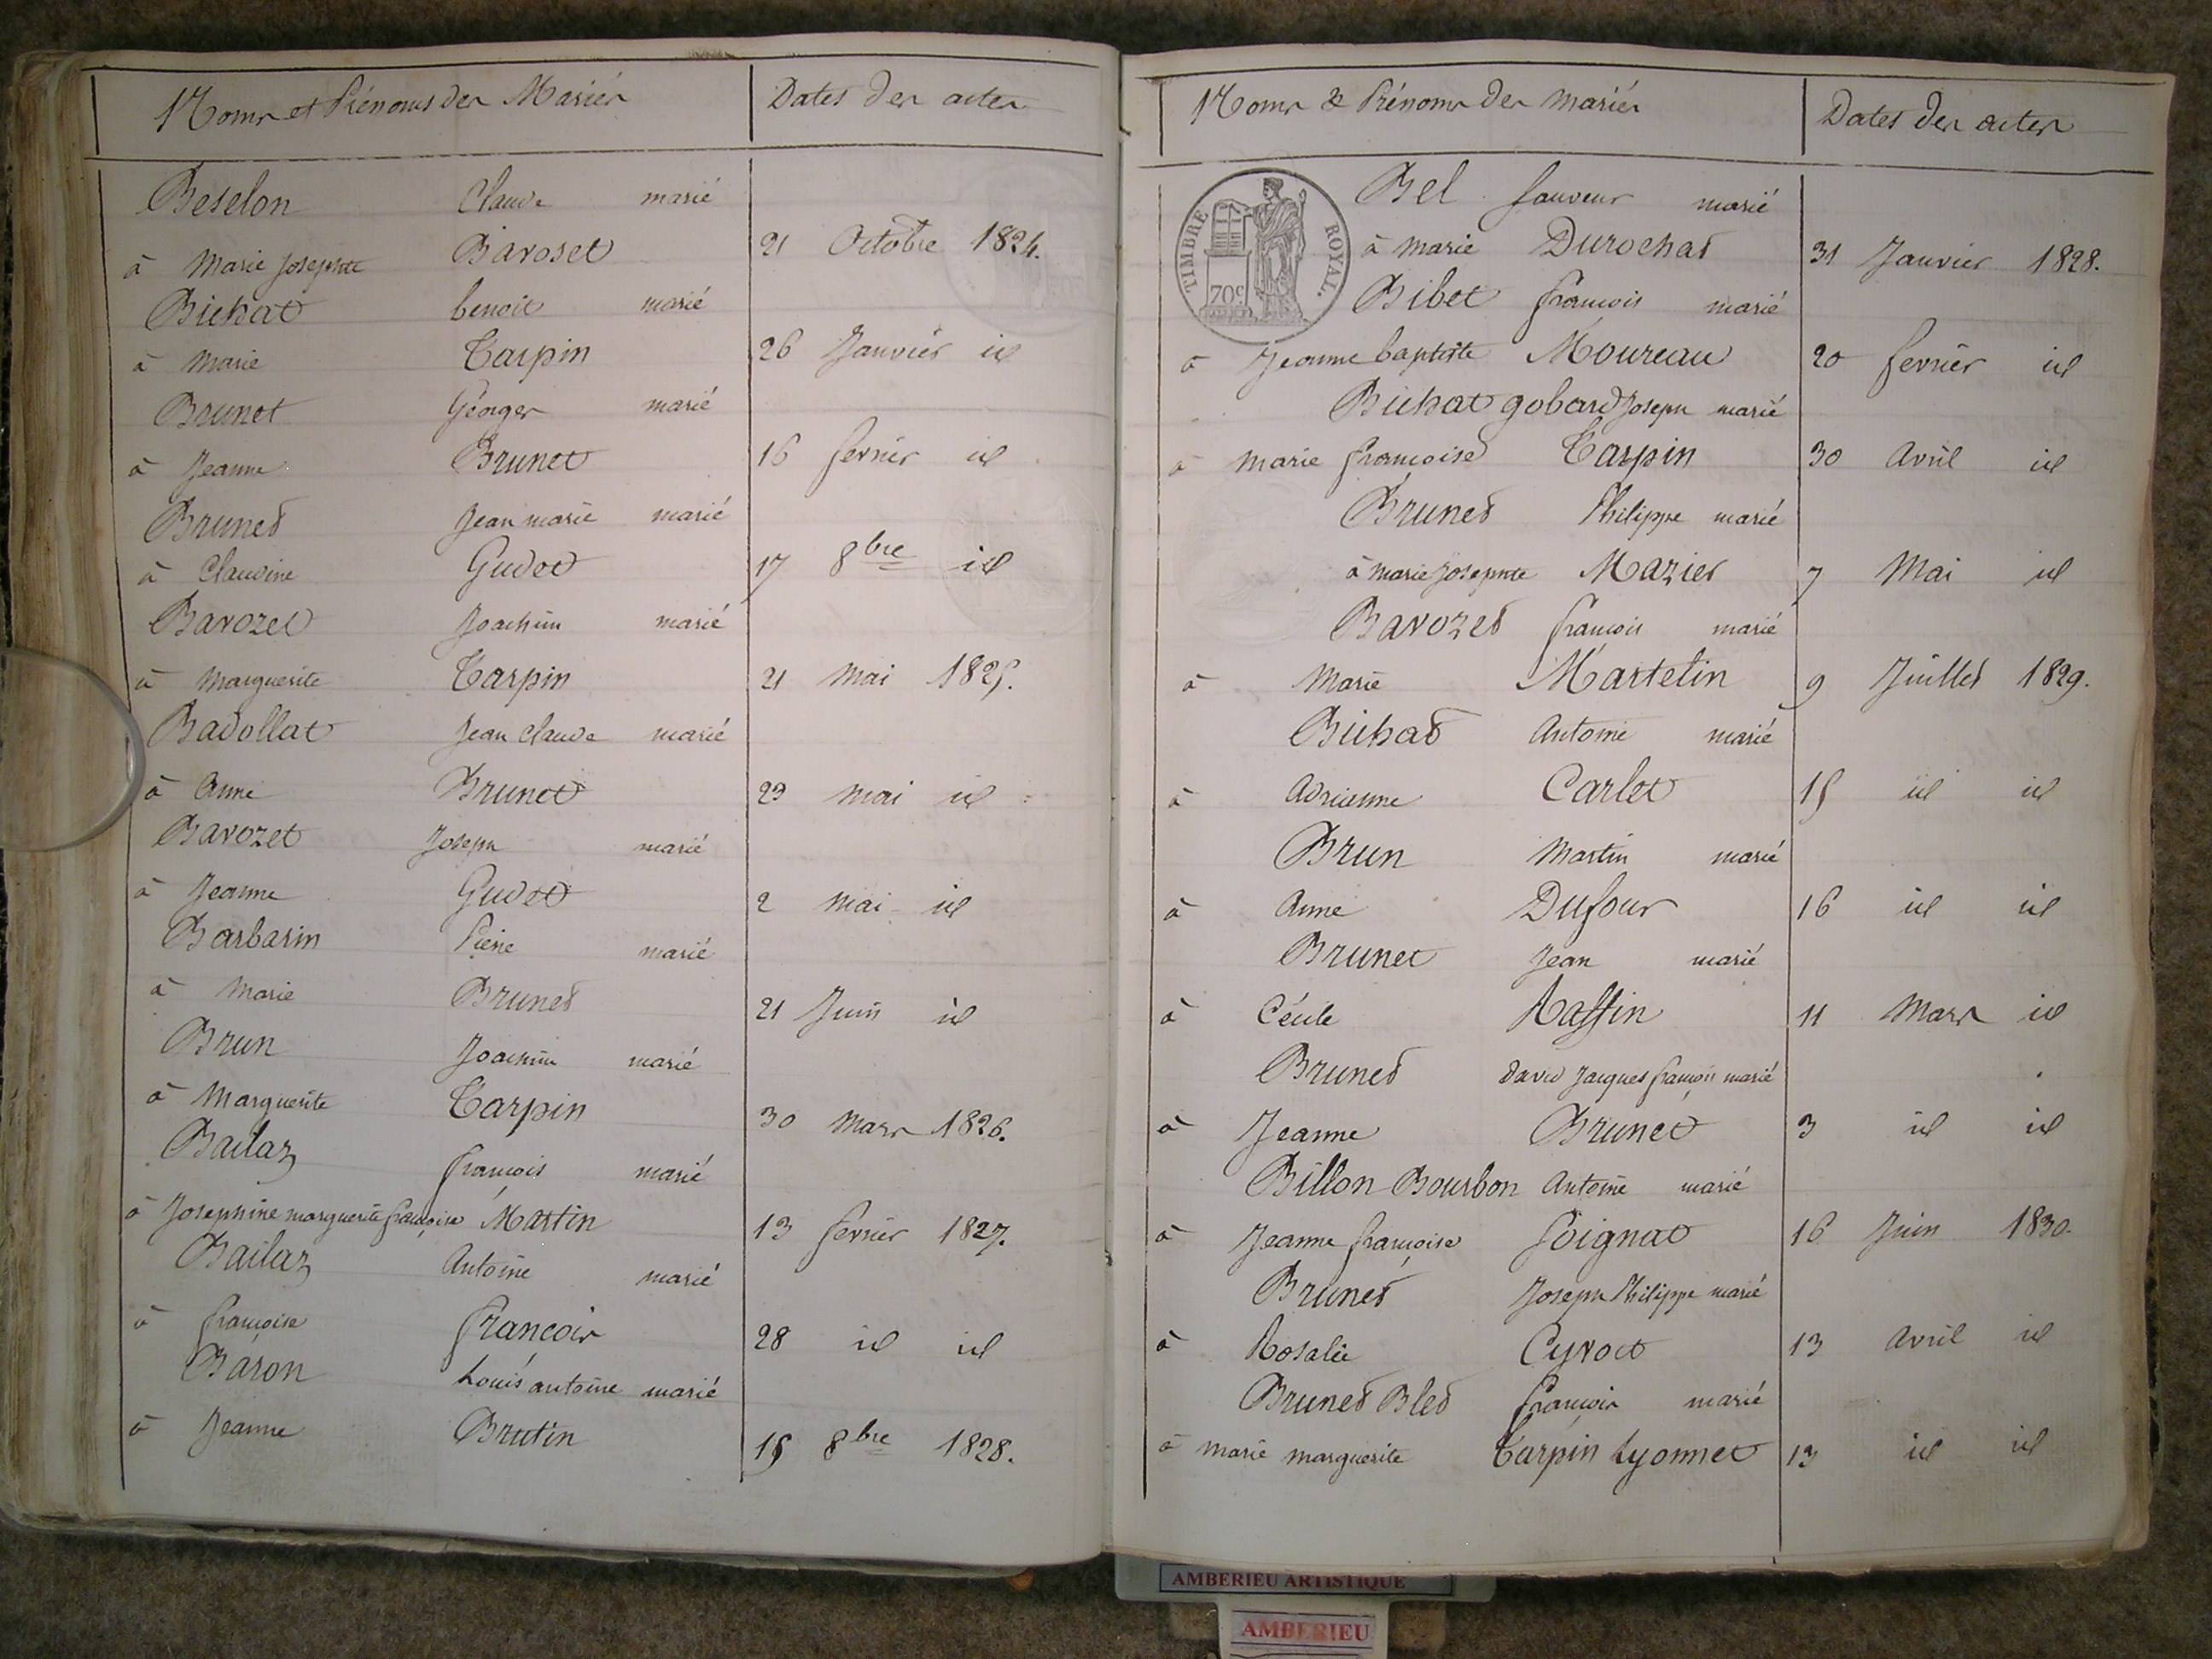 Noms et Prénoms des Mariés Dates des actes
Beselon Claude marié
à Marie Josephte Bavoset 21 Octobre 1824.
Bichat benoit marié
à Marie Tarpin 26 Janvier id
Brunet Géorges marié
à Jeanne Brunet 16 fevrier id
Brunet Jean marie marié
à Claudine Gudet 17 8bre id
Bavozet Joachim marié
à Marguerite Tarpin 21 Mai 1825.
Badollat Jean Claude marié
à Anne Brunet 29 mai id
Bavozet Joseph marié
à Jeanne Gudet 2 mai id
Barbarin Pierre marié
à Marie Brunet 21 Juin id
Brun Joachim marié
à Marguerite Tarpin 30 Mars 1826.
Bailaz francois marié
à Josephine marguerite françoise Martin 13 fevrier 1827.
Bailaz Antoine marié
à françoise françois 28 id id
Baron Louis antoine marié
à Jeanne Brutin 15 8bre 1828.
Noms & Prénoms des mariés Dates des actes
TIMBRE ROYAL.
70c
Bel Sauveur marié
à Marie Durochat 31 Janvier 1828.
Bibet françois marié
à Jeanne baptiste Moureau 20 fevrier id
Bichat gobard Joseph marié
à Marie françoise Tarpin 30 Avril id
Brunet Philippe marié
à Marie Josephte Mazier 7 Mai id
Bavozet francois marié
à Marie Martelin 9 Juillet 1829.
Bichat Antoine marié
à Adrienne Carlet 15 id id
Brun Martin marié
à Anne Dufour 16 id id
Brunet Jean marié
à Cécile Raffin 11 Mars id
Brunet David Jacques françois marié
à Jeanne Brunet 3 id id
Billon Bourbon Antoine marié
à Jeanne françoise Poignat 16 Juin 1830.
Brunet Joseph Philippe marié
à Rosalie Cyvoct 13 Avril id
Brunet Bled françois marié
à marie marguerite Tarpin Lyonnet 13 id id
AMBERIEU ARTISTIQUE
AMBERIEU